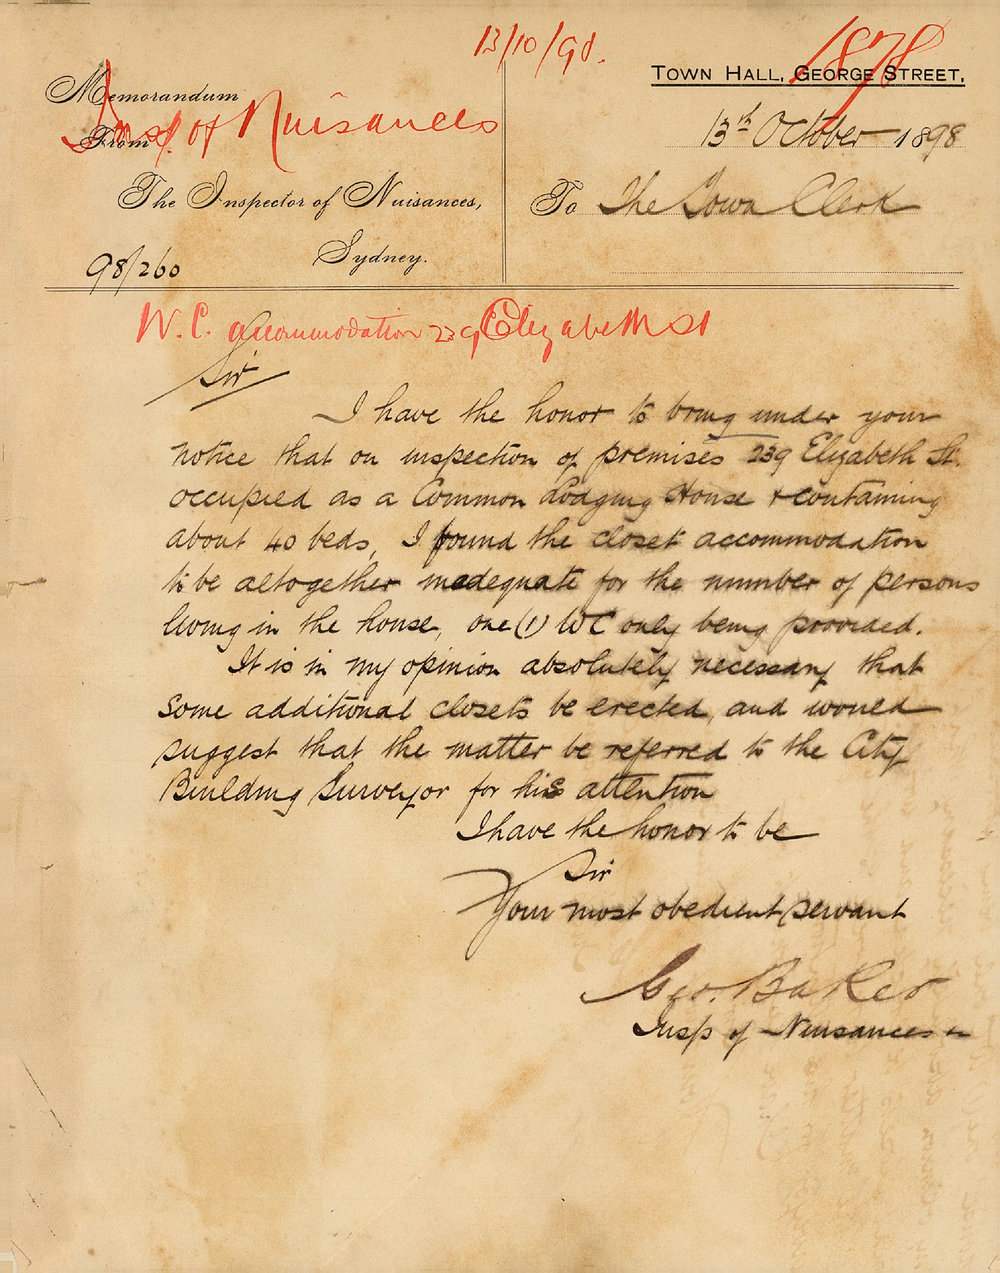 13/10/98.
1878
TOWN HALL, GEORGE STREET,
Memorandum
From
Insp. of Nuisances
13th October 1898
The Inspector of Nuisances,
To The Town Clerk
Sydney.
98/260
W.C. accommodation 239 Elizabeth St
Sir
I have the honor to bring under your
notice that on inspection of premises 239 Elizabeth St.
occupied as a Common Lodging House + containing
about 40 beds, I found the closet accommodation
to be altogether inadequate for the number of persons
living in the house, one (1) WC only being provided.
It is in my opinion absolutely necessary that
some additional closets be erected, and would
suggest that the matter be referred to the City
Building Surveyor for his attention
I have the honor to be
Sir
Your most obedient servant
Geo. Baker
Insp of Nuisances